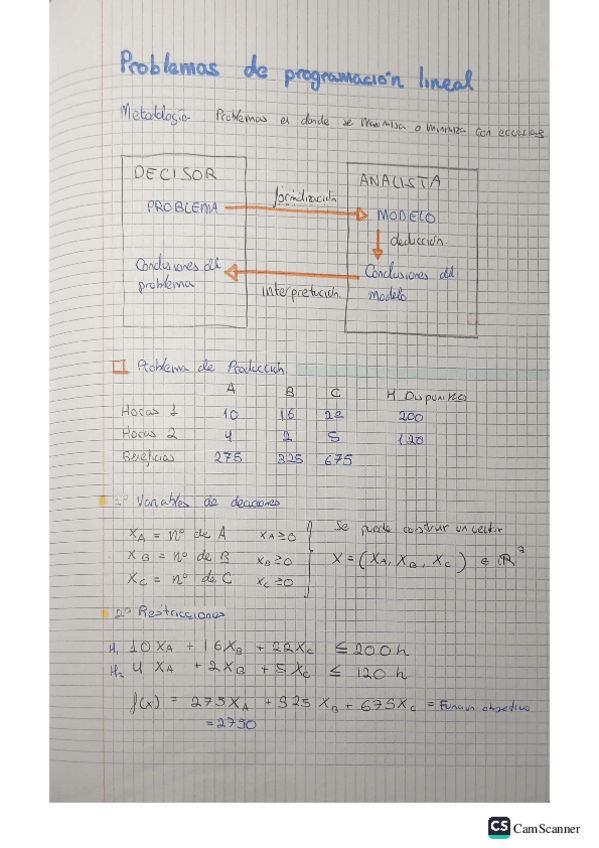 Problemas de programación lineal
Metodología Problemas en donde se maximisa o minimiza con
DECISOR
ANALISTA
PROBLEMA
formalización
MODELO
deducción
Conclusiones del
problema
interpretación
Conclusiones del
modelo
Problema de Producción
A B C H Disponibles
Horas 1 10 16 22 200
Horas 2 4 2 5 120
Beneficios 275 325 675
1º Variables de decisiones
XA = nº de A XA ≥ 0
XB = nº de B XB ≥ 0
XC = nº de C XC ≥ 0
Se puede construir un vector
X = (XA, XB, XC) ∈ ℝ
2º Restricciones
H1 10XA + 16XB + 22XC ≤ 200 h
H2 4 XA + 2XB + 5XC ≤ 120 h
f(x) = 275XA + 325 XB + 675XC = Función objetivo
= 2750
CS CamScanner